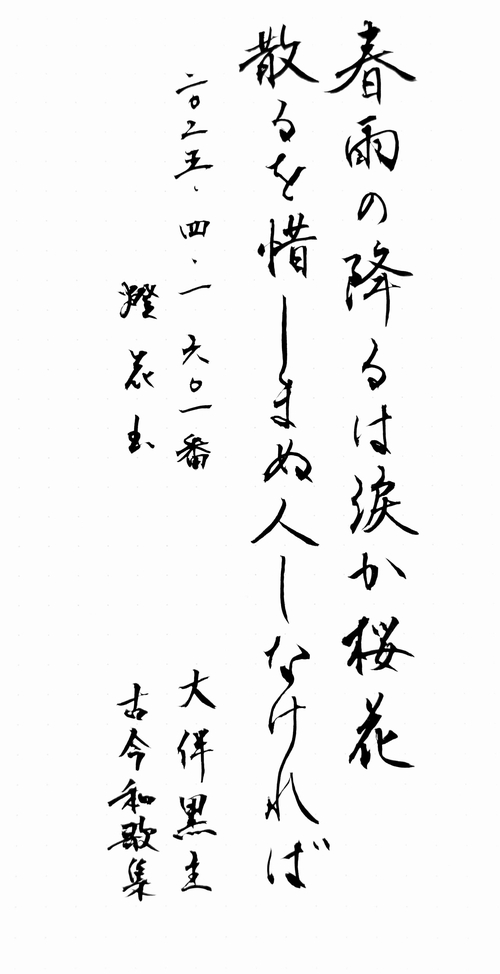 春雨の降るは涙か桜花
散るを惜しまぬ人しなければ
二〇二五、四、一 六〇一番 大伴黒主
花 古今和歌集